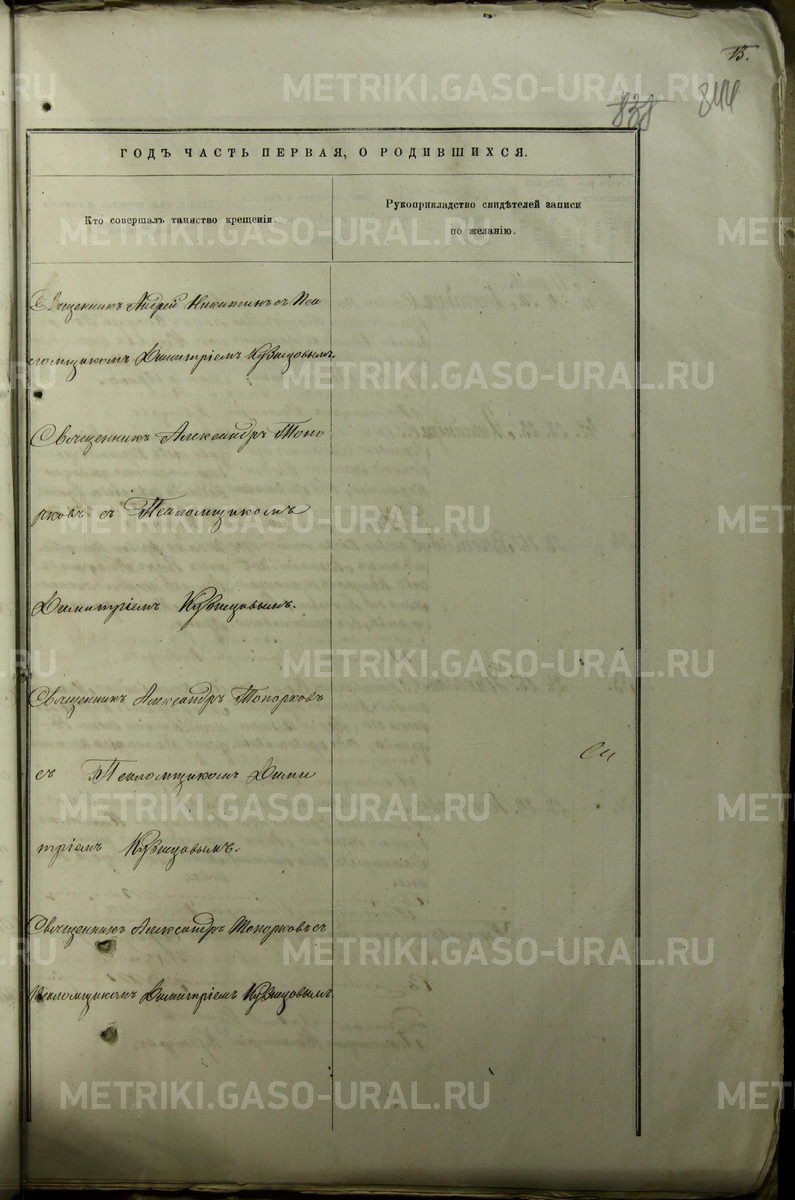 15.
838 844
ГОДЪ ЧАСТЬ ПЕРВАЯ, О РОДИВШИХСЯ.
Кто совершалъ таинство крещенія.
Рукоприкладство свидѣтелей записи
по желанію.
Священникъ Андрей Никитинъ съ Пса
ломщикомъ Димитріемъ Кузнецовымъ.
Священникъ Александръ Топо
рковъ съ Псаломщикомъ
Димитріемъ Кузнецовымъ.
Священникъ Александръ Топорковъ
съ Псаломщикомъ Дими
тріемъ Кузнецовымъ.
Священникъ Александръ Топорковъ съ
Псаломщикомъ Димитріемъ Кузнецовымъ
METRIKI.GASO-URAL.RU